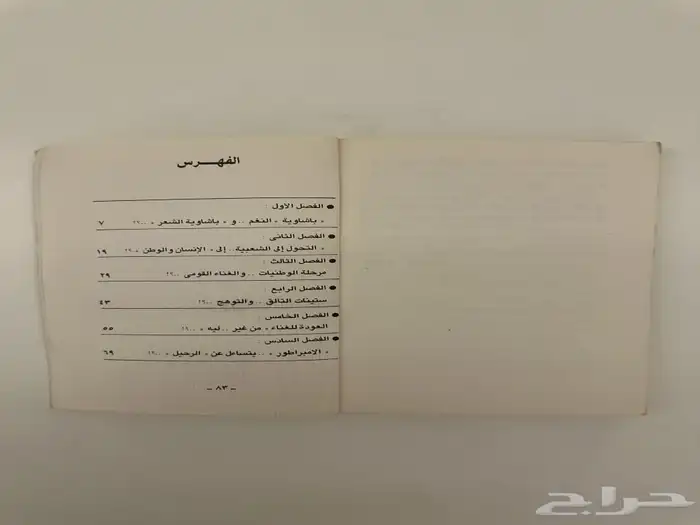 الفهـــرس
● الفصل الأول :
« باشاوية » النغم .. و « باشاوية الشعر » ..؟! ٧
● الفصل الثانى :
« التحول إلى الشعبية .. إلى « الإنسان والوطن » ؟! ١٩
● الفصل الثالث :
مرحلة الوطنيات .. والغناء القومى ..؟! ٢٩
● الفصل الرابع :
ستينات التألق .. والتوهج ..؟! ٤٣
● الفصل الخامس :
العودة للغناء « من غير .. ليه » ..؟! ٥٥
● الفصل السادس :
« الامبراطور » .. يتساءل عن « الرحيل » ..؟! ٦٩
– ٨٣ –
حراج